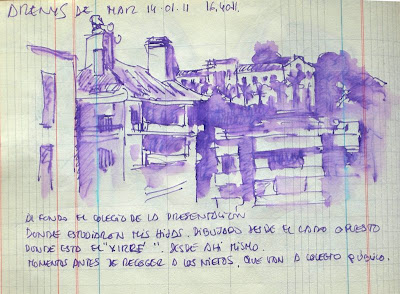 ARENYS DE MAR 14.01.11 16,40H.
AL FONDO EL COLEGIO DE LA PRESENTACIÓN
DONDE ESTUDIARON MIS HIJAS. DIBUJADO DESDE EL LADO OPUESTO
DONDE ESTÁ EL "XIRRÉ". DESDE AHÍ MISMO.
MOMENTOS ANTES DE RECOGER A LOS NIETOS, QUE VAN A COLEGIO PÚBLICO.